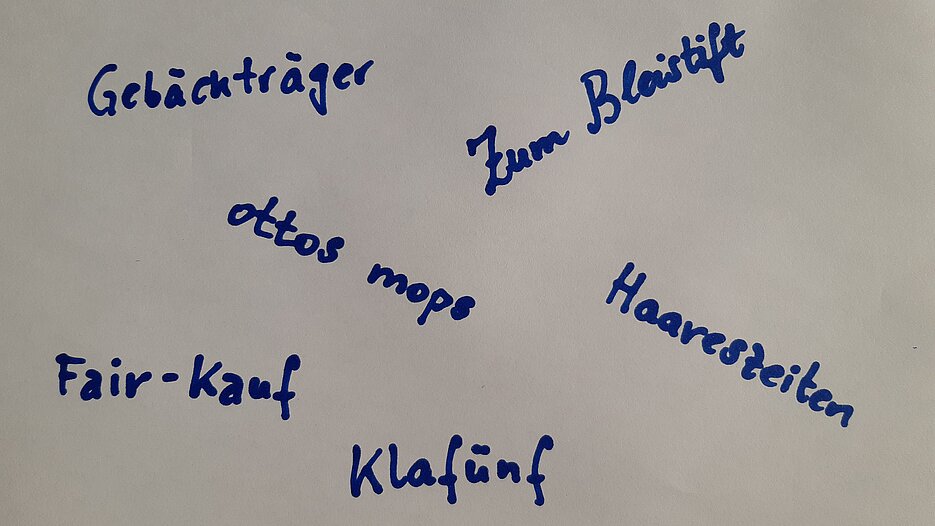 Gebäckträger
Zum Bleistift
ottos mops
Haareszeiten
Fair-Kauf
Klafünf